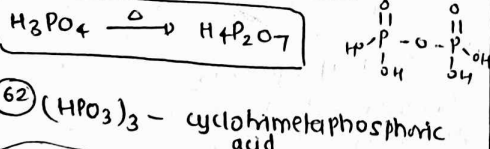 H3PO4 —Δ→ H4P2O7
O O
HO P - O - P OH
OH OH
62 (HPO3)3 - cyclotrimetaphosphoric
acid